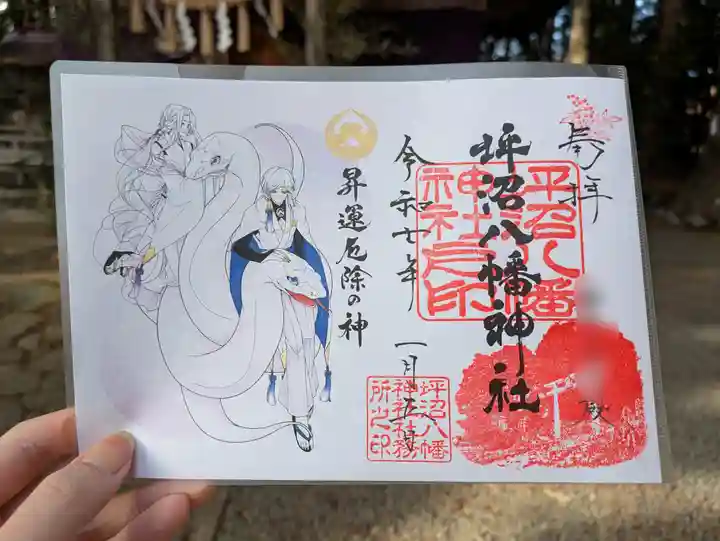 奉拝
坪沼八幡神社
坪沼八幡
神社之印
殿
令和七年
一月五日
坪沼八幡
神社社務
所之印
昇運厄除の神